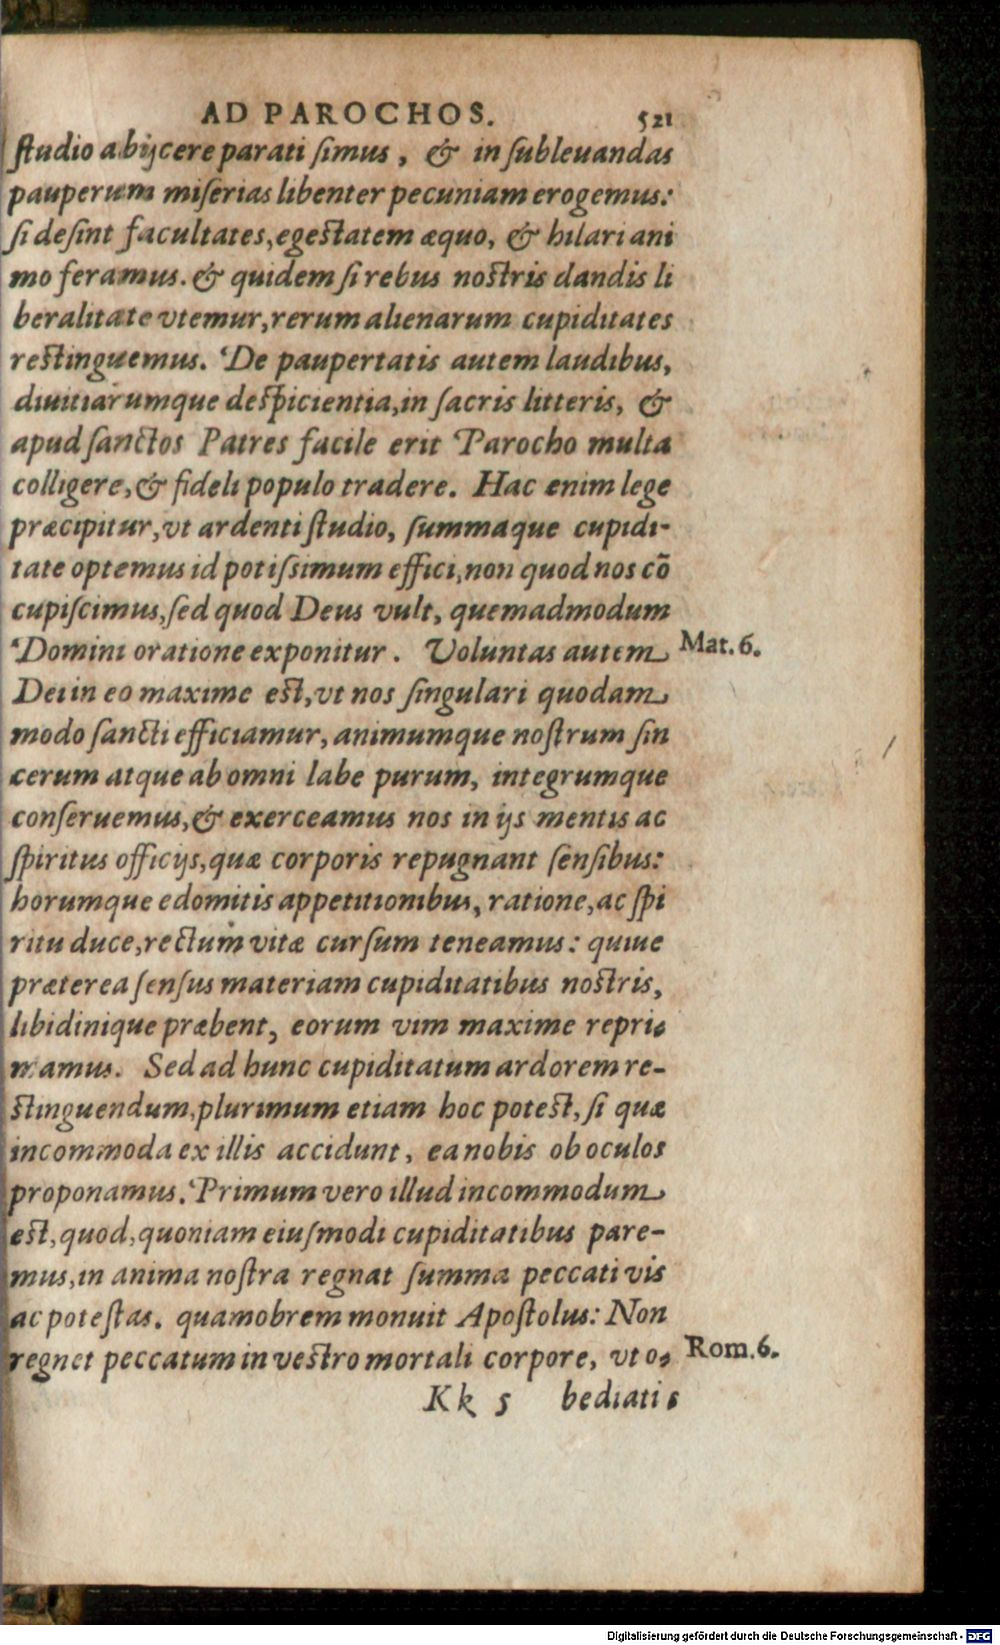 AD PAROCHOS. 521
ſtudio abijcere parati ſimus, & in ſubleuandas
pauperum miſerias libenter pecuniam erogemus:
ſi deſint facultates, egeſtatem æquo, & hilari ani
mo feramus. & quidem ſi rebus noſtris dandis li
beralitate vtemur, rerum alienarum cupiditates
reſtinguemus. De paupertatis autem laudibus,
diuitiarumque deſpicientia, in ſacris litteris, &
apud ſanctos Patres facile erit Parocho multa
colligere, & fideli populo tradere. Hac enim lege
præcipitur, vt ardenti ſtudio, ſummaque cupidi-
tate optemus id potiſsimum effici, non quod nos cō
cupiſcimus, ſed quod Deus vult, quemadmodum
Domini oratione exponitur. Voluntas autem Mat. 6.
Dei in eo maxime eſt, vt nos ſingulari quodam
modo ſancti efficiamur, animumque noſtrum ſin
cerum atque ab omni labe purum, integrumque
conſeruemus, & exerceamus nos in ijs mentis ac
ſpiritus officijs, quæ corporis repugnant ſenſibus:
horumque edomitis appetitionibus, ratione, ac ſpi
ritu duce, rectum vitæ curſum teneamus: quiue
præterea ſenſus materiam cupiditatibus noſtris,
libidinique præbent, eorum vim maxime repri-
mamus. Sed ad hunc cupiditatum ardorem re-
ſtinguendum, plurimum etiam hoc poteſt, ſi quæ
incommoda ex illis accidunt, ea nobis ob oculos
proponamus. Primum vero illud incommodum
eſt, quod, quoniam eiuſmodi cupiditatibus pare-
mus, in anima noſtra regnat ſumma peccati vis
ac poteſtas. quamobrem monuit Apoſtolus: Non
regnet peccatum in veſtro mortali corpore, vt o- Rom. 6.
Kk 5 bediatis
Digitalisierung gefördert durch die Deutsche Forschungsgemeinschaft - DFG